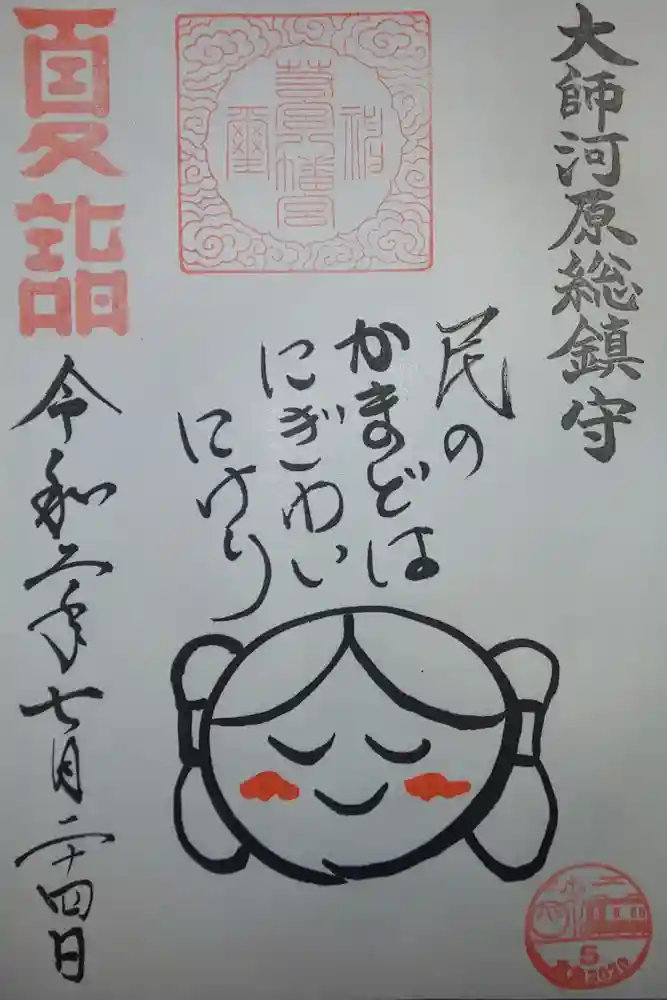 大師河原総鎮守
民の
かまどは
にぎわい
にけり
夏詣
令和二年七月二十四日
5
2020